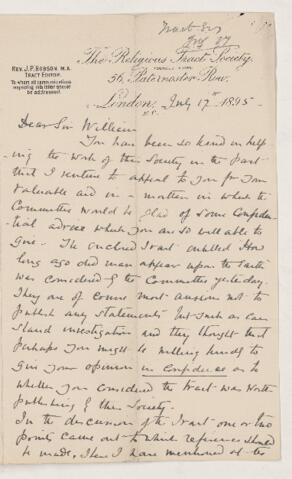 Tract Ed
Rev. J. P. Hobson, M.A.
Tract Editor.
To whom all communications
regarding this letter should
be addressed.
The Religious Tract Society,
56, Paternoster Row,
London, July 17th 1895
E.C.
Dear Sir William
You have been so kind in help
ing the work of this Society in the past
that I venture to appeal to you for your
valuable aid in a matter in which the
Committee would be glad of some confiden
tial advice which you are so well able to
give. The enclosed tract entitled How
long ago did man appear upon the earth
was considered by the Committee yesterday.
They are of course most anxious not to
publish any statements but such as can
stand investigation and they thought that
perhaps you might be willing kindly to
give your opinion in confidence as to
whether you considered the tract was worth
publishing by this Society.
In the discussion of the tract one or two
points came out to which reference should
be made. These I have mentioned at the